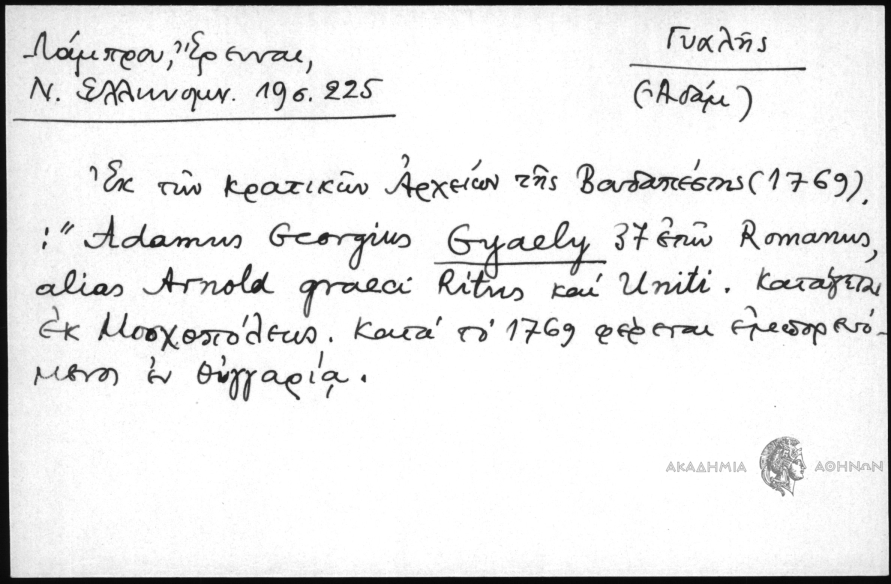 Λάμπρου, Ἔρευναι,
Ν. Ἑλληνομν. 19 σ. 225
Γυαλῆς
(Ἀδάμ)
Ἐκ τῶν κρατικῶν Ἀρχείων τῆς Βουδαπέστης (1769).
:" Adamus Georgius Gyaely 37 ἐτῶν Romanus,
alias Arnold graeci Ritus καί Uniti. Κατάγεται
ἐκ Μοσχοπόλεως. Κατά τό 1769 φέρεται ἐμπορευό-
μενος ἐν Οὑγγαρίᾳ.
ΑΚΑΔΗΜΙΑ ΑΘΗΝΩΝ